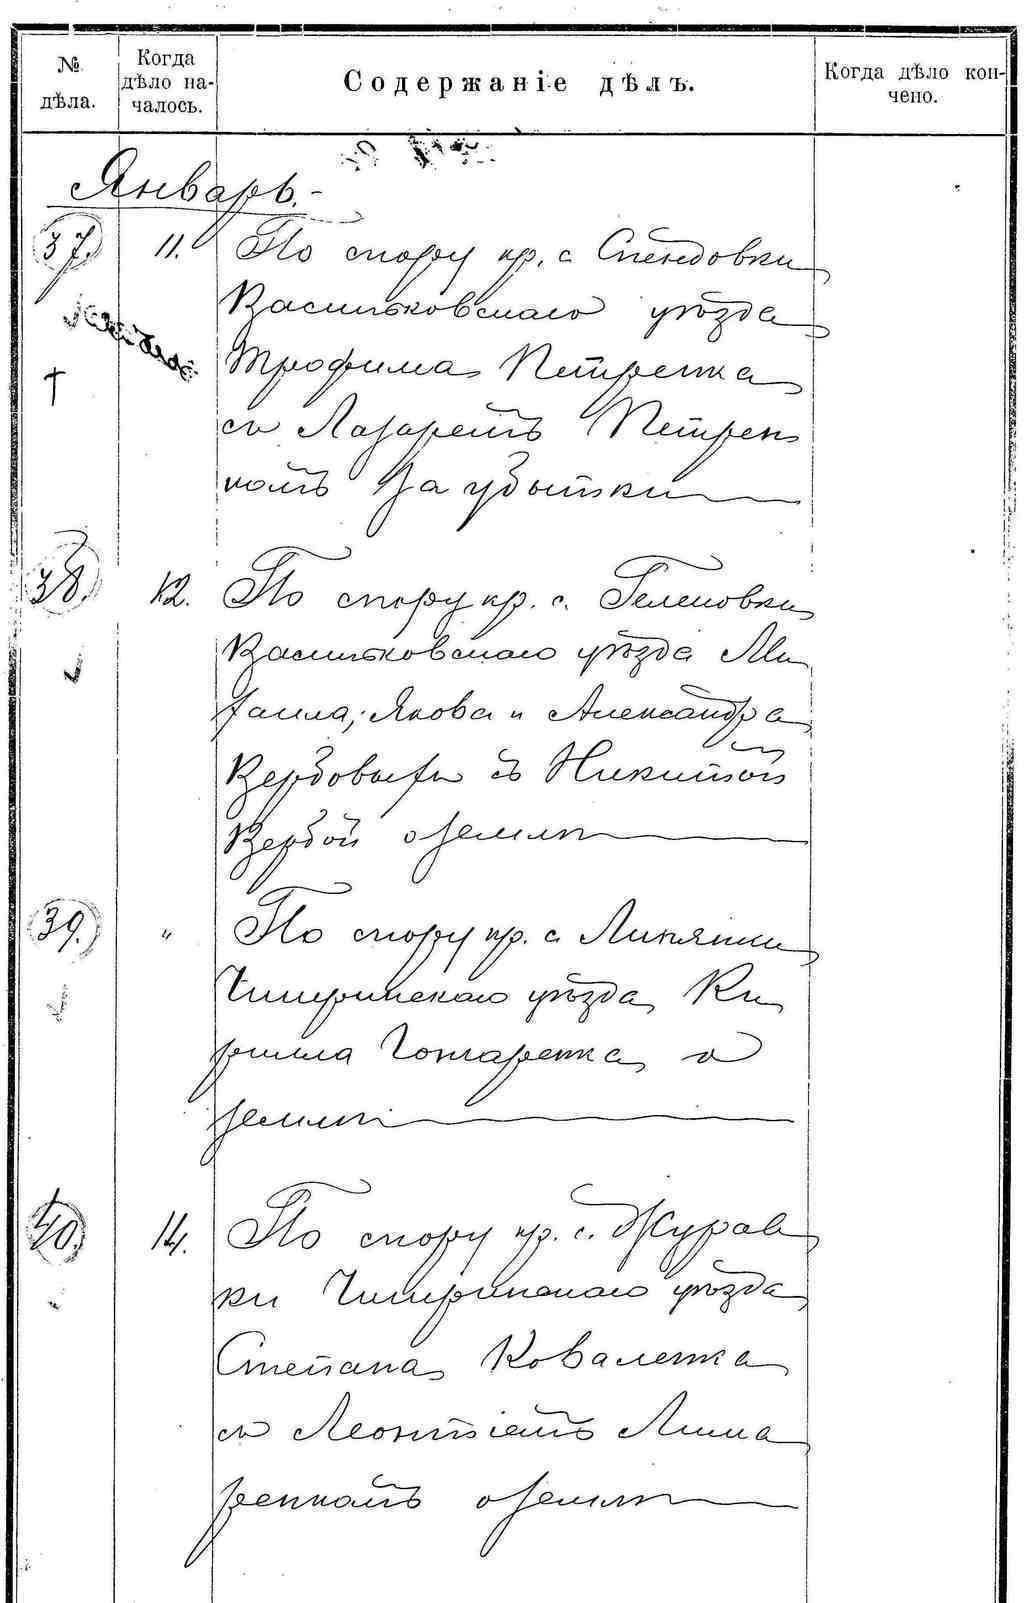 № дѣла.
Когда дѣло началось.
Содержаніе дѣлъ.
Когда дѣло кончено.
Январь.
37. 11. По спору кр. с. Спендовки
Васильковскаго уѣзда
Трофима Петренка
съ Лазаремъ Петрен
комъ за убытки
38. 12. По спору кр. с. Телешовки
Васильковскаго уѣзда Ми
хаила, Якова и Александра
Вербовыхъ съ Никитой
Вербой о землѣ
39. " По спору кр. с. Липянки
Чигиринскаго уѣзда Ки
рилла Гончаренка о
землѣ
40. 14. По спору кр. с. Журав
ки Чигиринскаго уѣзда
Степана Коваленка
съ Леонтіемъ Лима
ренкомъ о землѣ